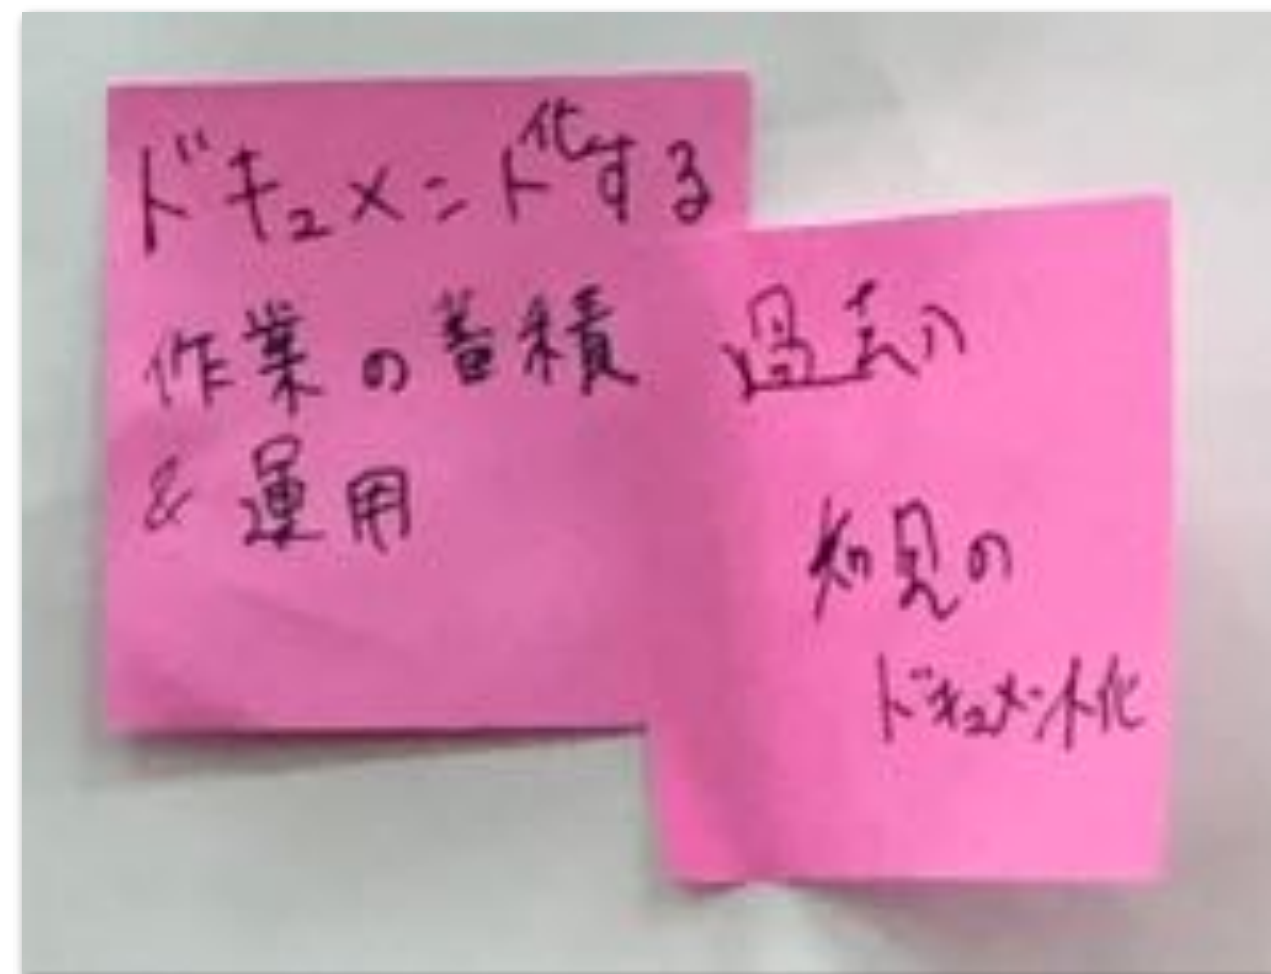 ドキュメント化する
作業の蓄積
& 運用
過去の
知見の
ドキュメント化